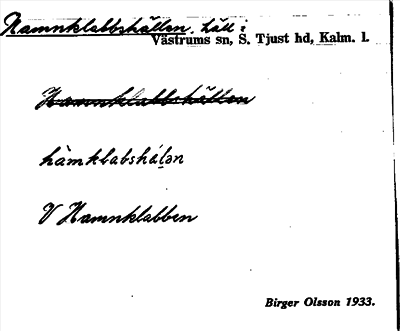 Hamnklabbshällen, häll i
Västrums sn, S. Tjust hd, Kalm. l.
Hamnklabbshällen
hàmklabshál̥ən
V Hamnklabben
Birger Olsson 1933.